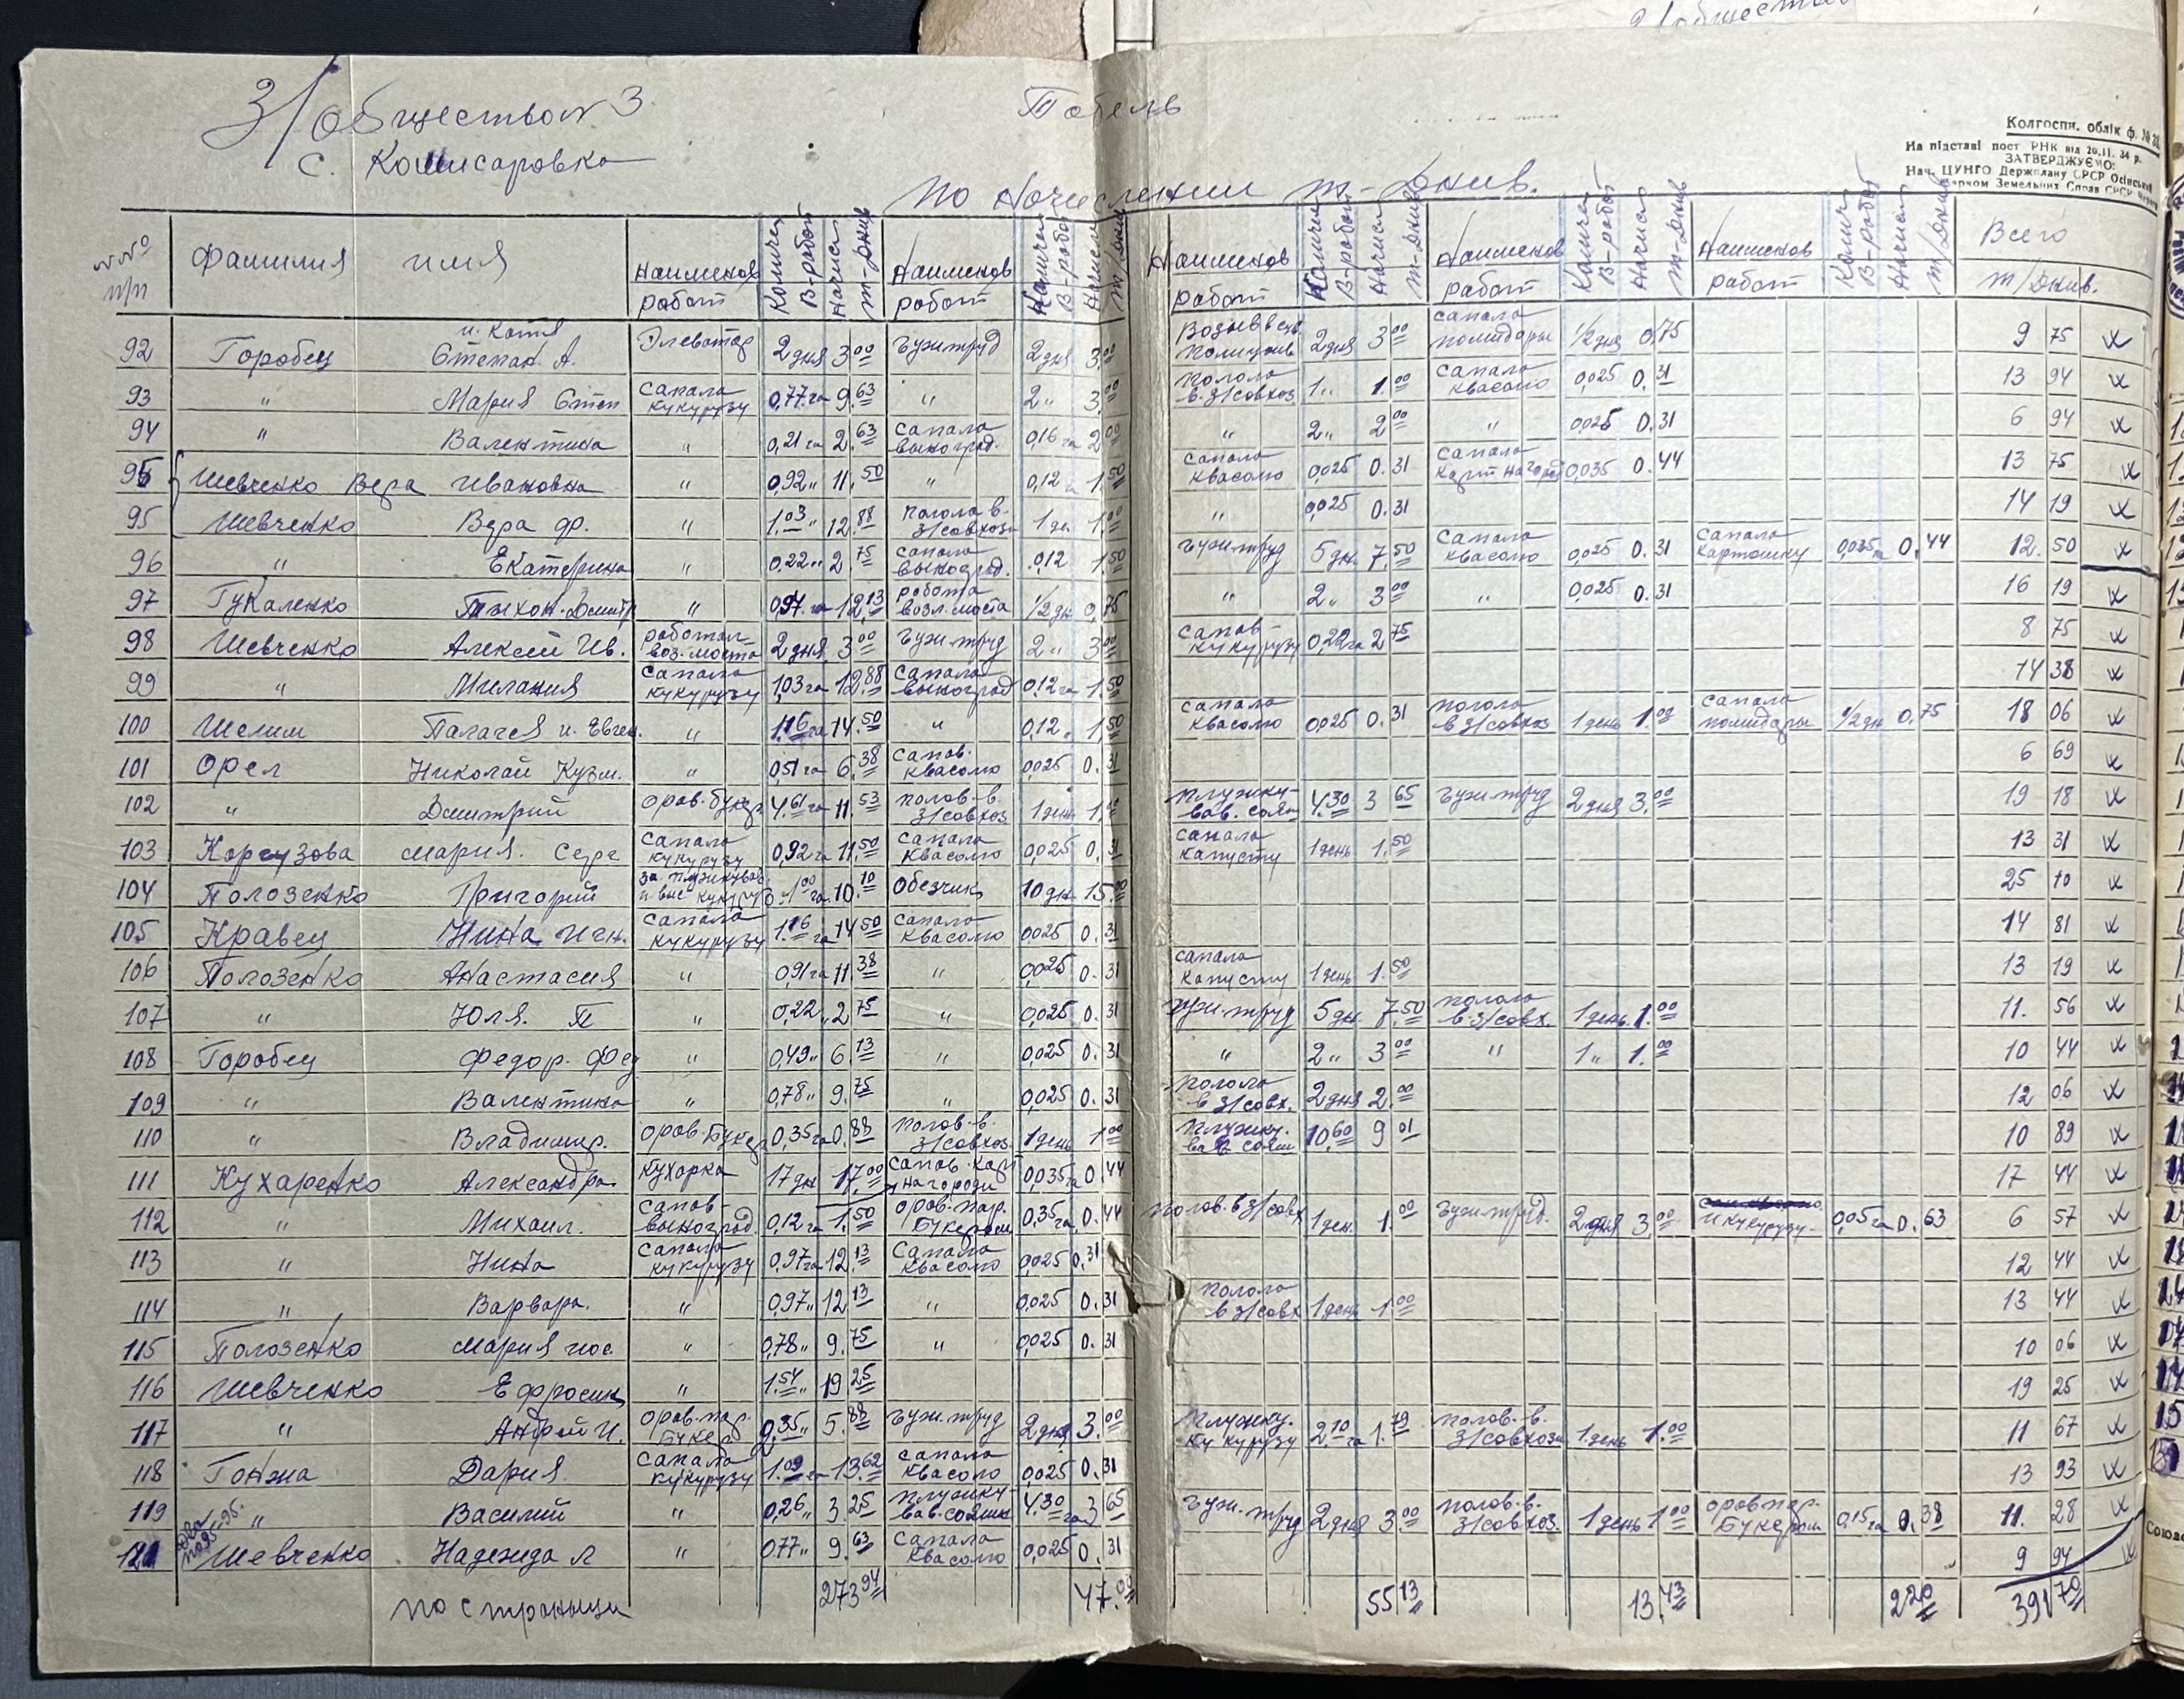 З/общество N 3
с. Комисаровка
Табель
по начислении т-днив.
Колгоспн. облік ф. №
На підставі пост РНК від 20.11. 34 р.
ЗАТВЕРДЖУЄМО:
Нач. ЦУНГО Держплану СРСР Осінський
Земельних Справ СРСР
№№ п/п Фамилия имя Наименов работ Количе В-работ Начисл т-днив Наименов работ Количе В-работ Начисл т/днив Наименов работ Количе В-работ Начисл т-днив Наименов работ Количе В-работ Начисл т-днив Наименов работ Количе В-работ Начисл т/днив Всего т/днив.
92 Горобец и. Катя Степан. А. Элеватор 2 дня 3.00 гужтруд 2 дня 3.00 2 дня 3.00 сапала помидары 1/2 дня 0,75 9 75
93 " Мария Степ сапала кукурузу 0,77 га 9.63 " 2 " 3.00 полола в.з/совхоз 1 " 1.00 сапала квасолю 0,025 0.31 13 94
94 " Валентина " 0,21 га 2.63 сапала виноград. 0,16 га 2.00 " 2 " 2.00 " 0,025 0.31 6 94
95 Шевченко Вера Ивановна " 0,92 " 11.50 " 0,12 1.50 сапала квасолю 0,025 0.31 сапала карт на город 0,035 0.44 13 75
95 Шевченко Вера фр. " 1.03 " 12.88 полола в. з/совхозе 1 де. 1.00 " 0,025 0.31 14 19
96 " Екатерина " 0,22 " 2 75 сапала виноград. 0,12 1.50 гужтруд 5 дн. 7.50 сапала квасолю 0,025 0.31 сапала картошку 0,035 га 0.44 12. 50
97 Гукаленко Тыхон. Дмитр " 0,97 га 12.13 работа возл. моста 1/2 дн 0,75 " 2 " 3.00 " 0,025 0.31 16 19
98 Шевченко Алексей Ив. работал воз. моста 2 дня 3.00 гужтруд 2 " 3.00 сапов кукурузу 0,22 га 2 75 8 75
99 " Милания сапала кукурузу 1,03 га 12.88 сапала виноград 0,12 га 1.50 14 38
100 Шелим Палагея и. Евген. " 1.16 га 14.50 " 0,12 " 1,50 сапала квасолю 0,025 0.31 полола в з/совхоз 1 день 1.00 сапала помидары 1/2 дн 0.75 18 06
101 Орел Николай Кузм. " 0,51 га 6.38 сапов. квасолю 0,025 0.31 6 69
102 " Дмитрий оров. букер 4.61 га 11.53 полов. в. з/совхоз 1 день 1.00 плужку- вав. соян 4.30 3 65 гужтруд 2 дня 3.00 19 18
103 Каргузова Мария. Серг сапала кукурузу 0,92 га 11.50 сапала квасолю 0,025 0.31 сапала капусту 1 день 1.50 13 31
104 Полозенко Григорий 10.10 обезчик 10 дн 15.00 25 10
105 Кравец Нина Игн. сапала кукурузу 1.16 га 14 50 сапала квасолю 0,025 0.31 14 81
106 Полозенко Анастасия " 0,91 га 11 38 " 0,025 0.31 сапала капусту 1 день 1.50 13 19
107 " Юля. П " 0,22 " 2 75 " 0,025 0.31 гуж. труд 5 дн. 7.50 полола в. з/совх. 1 день. 1.00 11. 56
108 Горобец Федор. Фед " 0,49 " 6.13 " 0,025 0.31 " 2 " 3.00 " 1 " 1.00 10 44
109 " Валентина " 0,78 " 9.75 " 0,025 0.31 полола в з/совх. 2 дня 2.00 12 06
110 " Владимир. оров. Букер 0,35 га 0.88 полов. в. з/совхоз 1 день 1.00 плужку. вав соян 10.60 9 01 10 89
111 Кухаренко Александра. кухарка 17 дн 17.00 сапов. карт на городи 0,035 га 0.44 17 44
112 " Михаил. сапов виноград. 0,12 га 1.50 оров. пар. Букером 0,35 га 0.44 полов. в з/совх 1 ден. 1.00 гужтруд. 2 дня 3.00 и кукурузу 0,05 га 0.63 6 57
113 " Нина сапала кукурузу 0,97 га 12 13 сапала квасолю 0,025 0,31 12 44
114 " Варвара. " 0,97 " 12 13 " 0,025 0.31 полола в з/совх 1 день 1.00 13 44
115 Полозенко Мария иос. " 0,78 " 9.75 " 0,025 0.31 10 06
116 Шевченко Ефросин " 1.54 " 19 25 19 25
117 " Андрей И. оров. пар. Букер 5.88 гуж. труд 2 дня 3.00 плужку. кукурузу 2.10 га 1.79 полов. в. з/совхозе 1 день 1.00 11 67
118 Гонжа Дария. сапала кукурузу 1.09 га 13.62 сапала квасолю 0,025 0.31 13 93
119 " Василий " 0,26 " 3.25 плужку- вав. сояшн 4.30 га 3 65 гуж. труд 2 дня 3.00 полов. в. з/совхоз. 1 день 1.00 оров пар. Букером 0,15 га 0.38 11. 28
121 Шевченко Надежда Л " 0,77 " 9.63 сапала квасолю 0,025 0.31 9 94
по страници 273 94 47.00 55 13 13.43 2 20 391 70